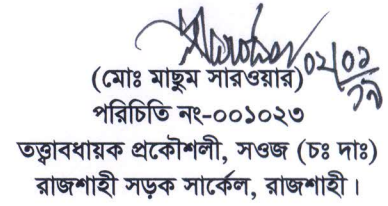 ০২/০১/১৯
(মোঃ মাছুম সারওয়ার)
পরিচিতি নং-০০১০২৩
তত্ত্বাবধায়ক প্রকৌশলী, সওজ (চঃ দাঃ)
রাজশাহী সড়ক সার্কেল, রাজশাহী।